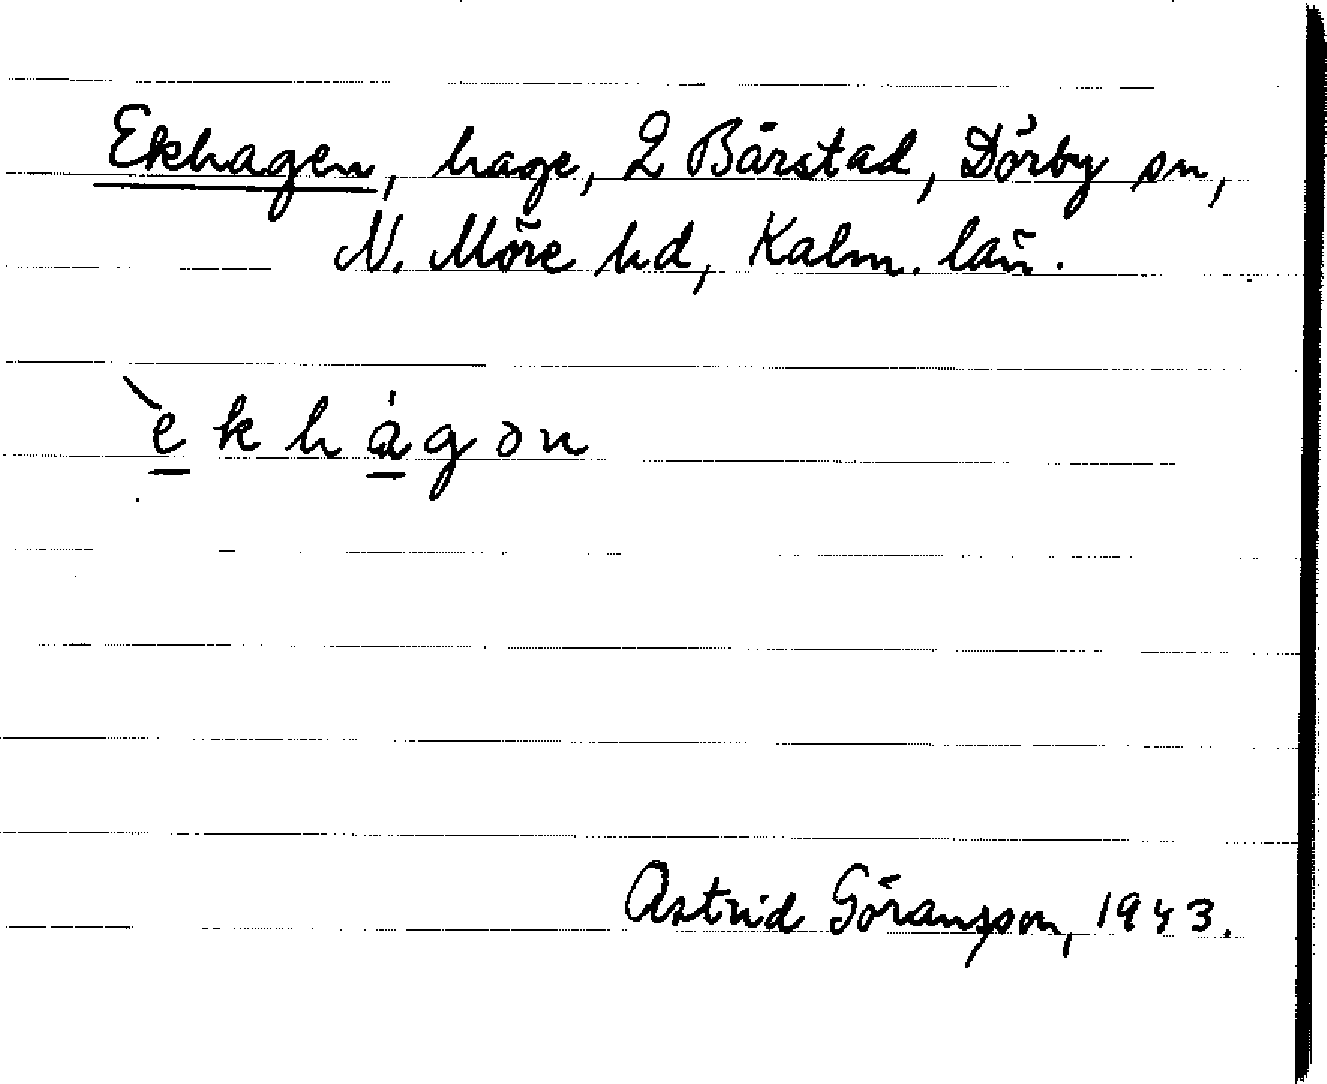 Ekhagen, hage, 2 Bårstad, Dörby sn,
N. Möre hd, Kalm. län.
èkhágɔn
Astrid Göransson, 1943.